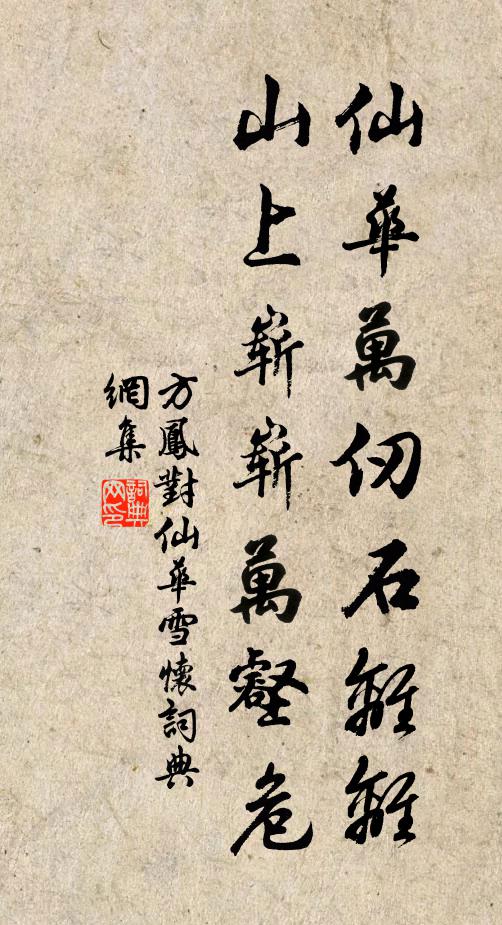 仙華萬仞石離離
山上嶄嶄萬壑危
方鳳對仙華雪懷詞典
網集
詞典
网印